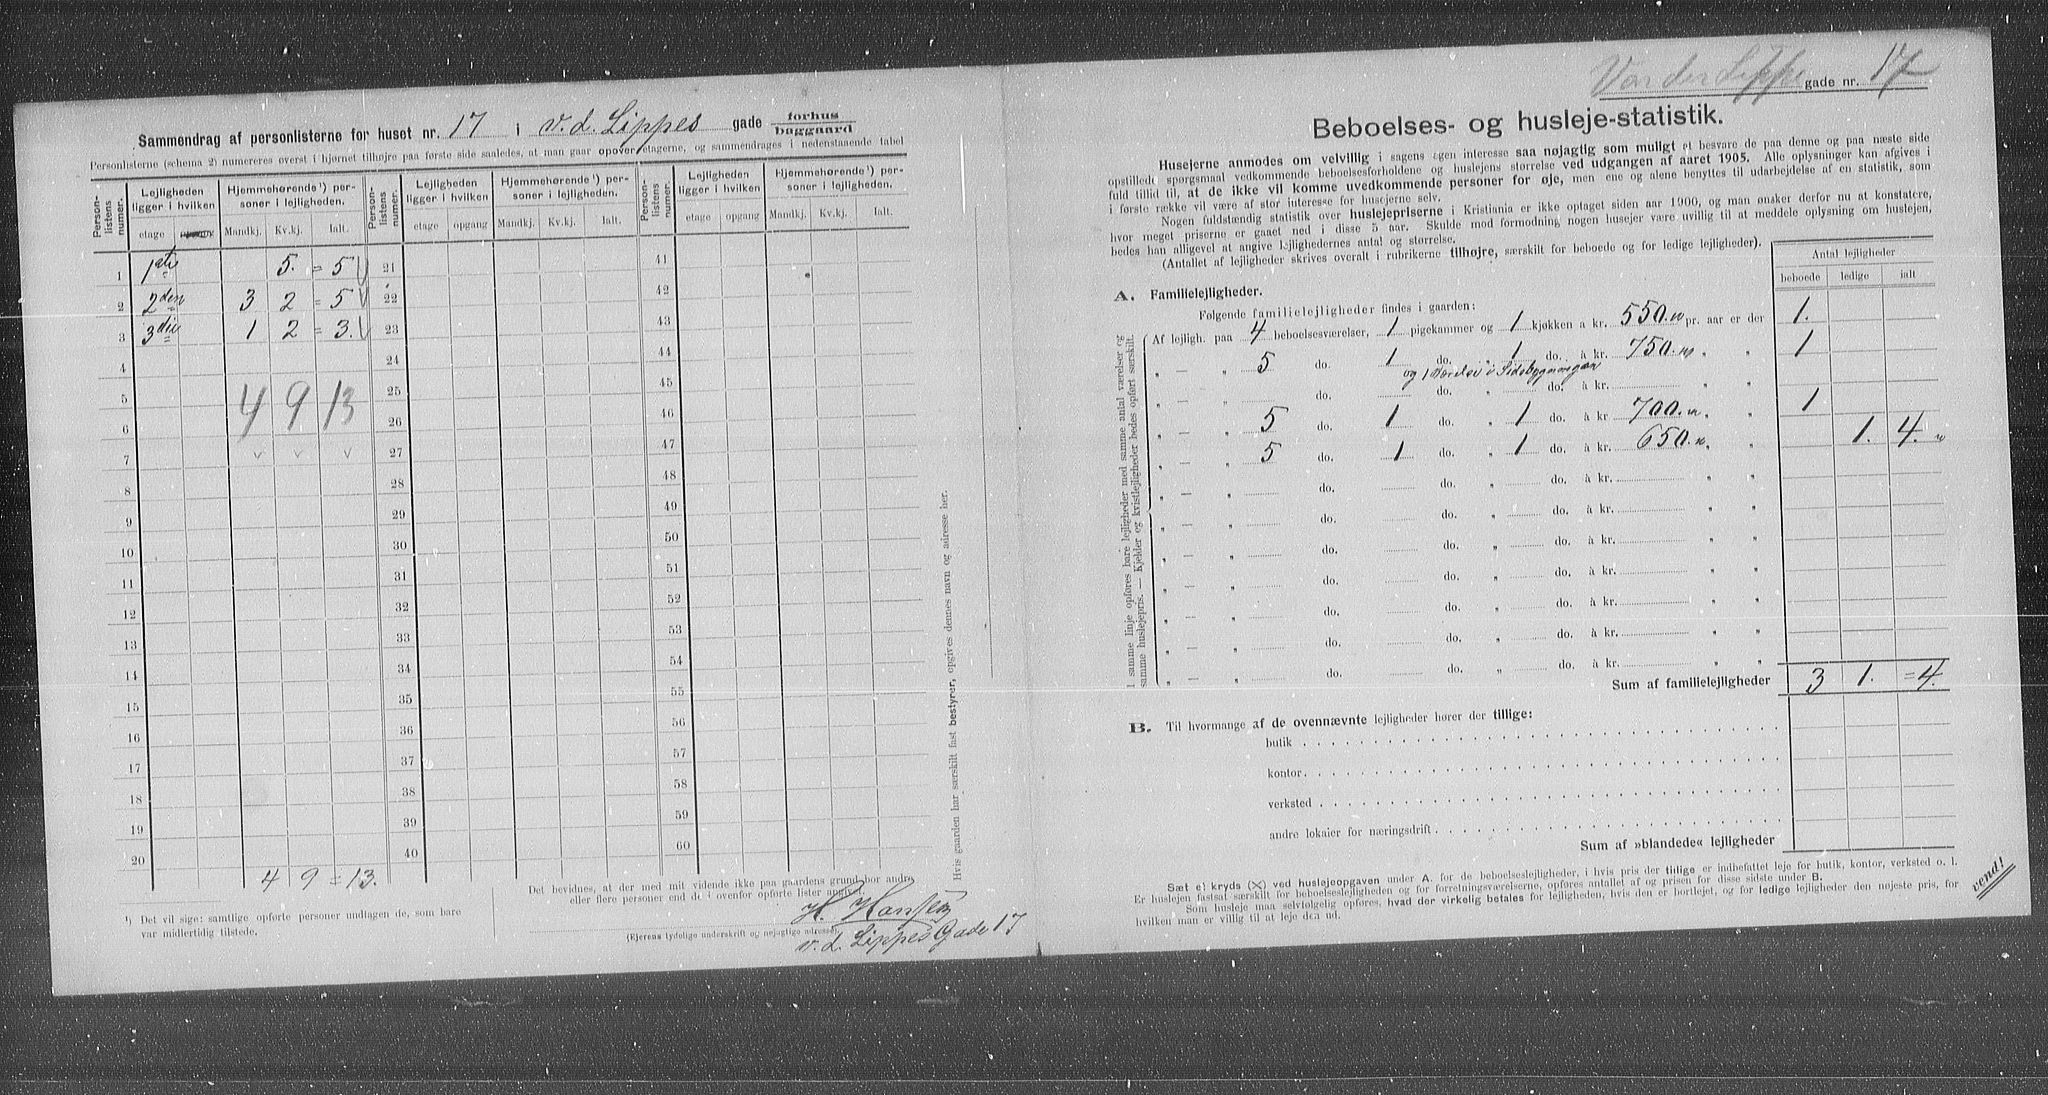 Sammendrag af personlisterne for huset nr. 17 i v. d. Lippes gade forhus baggaard
Personlisterne (schema 2) numereres øverst i hjørnet tilhøjre paa første side saaledes, at man gaar opover etagerne, og sammendrages i nedenstaaende tabel
Person-listens numer. Lejligheden ligger i hvilken etage opgang Hjemmehørende ¹) personer i lejligheden. Mandkj. Kv.kj. Ialt.
Person-listens numer. Lejligheden ligger i hvilken etage opgang Hjemmehørende ¹) personer i lejligheden. Mandkj. Kv.kj. Ialt.
Person-listens numer. Lejligheden ligger i hvilken etage opgang Hjemmehørende ¹) personer i lejligheden. Mandkj. Kv.kj. Ialt.
1 1ste 5. = 5 21 41
2 2den 3 2 = 5 22 42
3 3die 1 2 = 3. 23 43
4 24 44
5 4 9 13 25 45
6 26 46
7 27 47
8 28 48
9 29 49
10 30 50
11 31 51
12 32 52
13 33 53
14 34 54
15 35 55
16 36 56
17 37 57
18 38 58
19 39 59
20 40 60
4 9 = 13.
¹) Det vil sige: samtlige opførte personer undtagen de, som bare
var midlertidig tilstede.
Det bevidnes, at der med mit vidende ikke paa gaardens grund bor andre
eller flere personer end de i ovenfor opførte lister angivne.
H. Hansen
(Ejerens tydelige underskrift og nøjagtige adresse)
v. d. Lippes Gade 17
Hvis gaarden har særskilt fast bestyrer, opgives dennes navn og adresse her.
Von der Lippe gade nr. 17
Beboelses- og husleje-statistik.
Husejerne anmodes om velvillig i sagens egen interesse saa nøjagtig som muligt at besvare de paa denne og paa næste side
opstillede spørgsmaal vedkommende beboelsesforholdene og huslejens størrelse ved udgangen af aaret 1905. Alle oplysninger kan afgives i
fuld tillid til, at de ikke vil komme uvedkommende personer for øje, men ene og alene benyttes til udarbejdelse af en statistik, som
i første række vil være af stor interesse for husejerne selv.
Nogen fuldstændig statistik over huslejepriserne i Kristiania er ikke optaget siden aar 1900, og man ønsker derfor nu at konstatere,
hvor meget priserne er gaaet ned i disse 5 aar. Skulde mod formodning nogen husejer være uvillig til at meddele oplysning om huslejen,
bedes han alligevel at angive lejlighedernes antal og størrelse.
(Antallet af lejligheder skrives overalt i rubrikerne tilhøjre, særskilt for beboede og for ledige lejligheder).
Antal lejligheder
beboede ledige ialt
A. Familielejligheder.
Følgende familielejligheder findes i gaarden:
Af lejligh. paa 4 beboelsesværelser, 1 pigekammer og 1 kjøkken a kr. 550.00 pr. aar er der 1.
" — " 5 do. 1 do. " 1 do. à kr. 750.00 " " 1
og 1 Værelse i Sidebygningen
" — " do. do. " do. à kr. " "
" — " 5 do. 1 do. " 1 do. à kr 700.00 " " 1
" — " 5 do. 1 do. " 1 do. à kr. 650.00 " " 1. 4.
" — " do. do. " do. à kr. " "
" — " do. do. " do. à kr. " "
" — " do. do. " do. à kr. " "
" — " do. do. " do. à kr. " "
" — " do. do. " do. à kr. " "
" — " do. do. " do. à kr. " "
" — " do. do. " do. à kr. " "
I samme linje opføres bare lejligheder med samme antal værelser og
samme huslejepris. — Kjelder og kvistlejligheder bedes opført særskilt.
Sum af familielejligheder 3 1. = 4.
B. Til hvormange af de ovennævnte lejligheder hører der tillige:
butik
kontor
verksted
andre lokaler for næringsdrift
Sum af »blandede« lejligheder
Sæt et kryds (X) ved huslejeopgaven under A. for de beboelseslejligheder, i hvis pris der tillige er indbefattet leje for butik, kontor, verksted o. l.
Er huslejen fastsat særskilt for beboelseslejligheden og for forretningsværelserne, opføres antallet af og prisen for disse sidste under B.
Som husleje maa selvfølgelig opføres, hvad der virkelig betales for lejligheden, hvis den er bortlejet, og for ledige lejligheder den nøjeste pris, for
hvilken man er villig til at leje den ud.
vend!